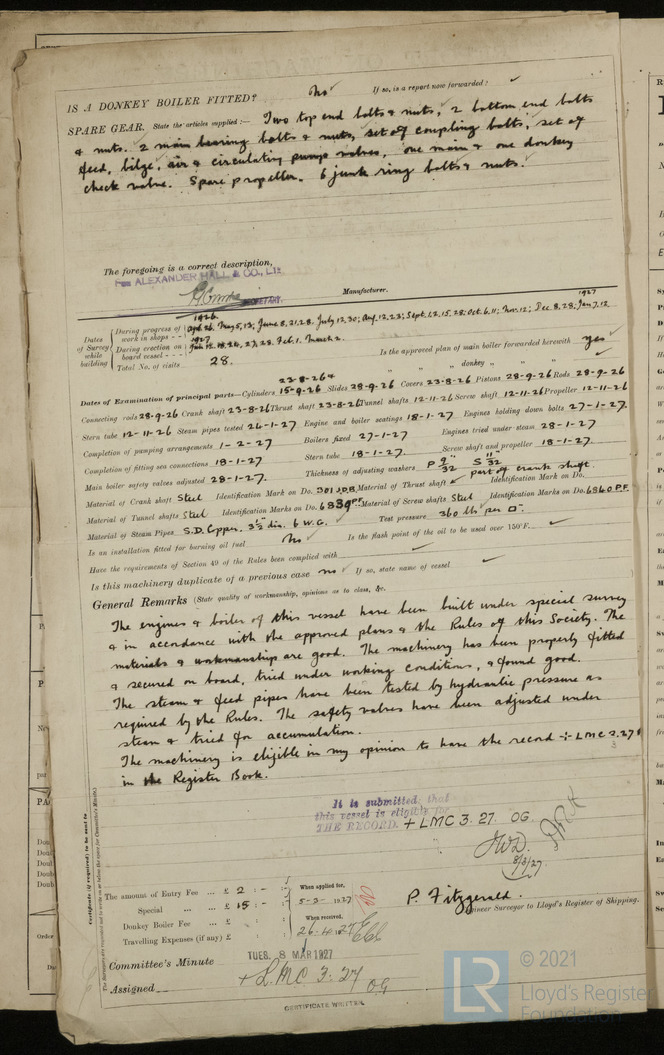 IS A DONKEY BOILER FITTED? No ✓ If so, is a report now forwarded? ✓
SPARE GEAR. State the articles supplied:— Two top end bolts & nuts, 2 bottom end bolts
& nuts. 2 main bearing bolts & nuts, set of coupling bolts, set of
feed, bilge, air & circulating pump valves, one main & one donkey
check valve. Spare propeller. 6 junk ring bolts & nuts.
The foregoing is a correct description,
For ALEXANDER HALL & CO., Ltd.
SECRETARY. Manufacturer.
Dates of Survey while building
1926 1927
During progress of work in shops - - April 26, May 5, 13; June 8, 21, 28, July 12, 30; Aug 12, 23; Sept. 1, 2, 15, 28; Oct 6, 11; Nov. 12; Dec 8, 28; Jan 7, 12
1927
During erection on board vessel - - - Jan 12, 18, 26, 27, 28, Feb. 1, March 2.
Total No. of visits 28. Is the approved plan of main boiler forwarded herewith yes ✓
" " " donkey " " "
23-8-26
Dates of Examination of principal parts—Cylinders 15-9-26 Slides 28-9-26 Covers 23-8-26 Pistons 28-9-26 Rods 28-9-26
Connecting rods 28-9-26 Crank shaft 23-8-26 Thrust shaft 23-8-26 Tunnel shafts 12-11-26 Screw shaft 12-11-26 Propeller 12-11-26
Stern tube 12-11-26 Steam pipes tested 24-1-27 Engine and boiler seatings 18-1-27 Engines holding down bolts 27-1-27.
Completion of pumping arrangements 1-2-27 Boilers fixed 27-1-27 Engines tried under steam 28-1-27
Completion of fitting sea connections 18-1-27 Stern tube 18-1-27. Screw shaft and propeller 18-1-27.
Main boiler safety valves adjusted 28-1-27. Thickness of adjusting washers P 9/32 S 11/32
Material of Crank shaft Steel Identification Mark on Do. 301 JDB Material of Thrust shaft part of crank shaft. Identification Mark on Do.
Material of Tunnel shafts Steel Identification Marks on Do. 6839 PF Material of Screw shafts Steel Identification Marks on Do. 6840 PF
Material of Steam Pipes S.D. Copper. 3½" dia. 6 W.G. Test pressure 360 lbs per □".
Is an installation fitted for burning oil fuel No ✓ Is the flash point of the oil to be used over 150°F. ✓
Have the requirements of Section 49 of the Rules been complied with ✓
Is this machinery duplicate of a previous case no ✓ If so, state name of vessel ✓
General Remarks (State quality of workmanship, opinions as to class, &c.
The engines & boiler of this vessel have been built under special survey
& in accordance with the approved plans & the Rules of this Society. The
materials & workmanship are good. The machinery has been properly fitted
& secured on board, tried under working conditions, & found good.
The steam & feed pipes have been tested by hydraulic pressure as
required by the Rules. The safety valves have been adjusted under
steam & tried for accumulation.
The machinery is eligible in my opinion to have the record + LMC 3.27
in the Register Book.
It is submitted that
this vessel is eligible for
THE RECORD. + LMC 3. 27. OG.
JWD.
8/3/27
The amount of Entry Fee ... £ 2 : - : When applied for,
Special ... ... £ 15 : - : 5-3-1927
Donkey Boiler Fee ... £ : : When received,
Travelling Expenses (if any) £ : : 26.4.27
P. Fitzgerald.
Engineer Surveyor to Lloyd's Register of Shipping.
Committee's Minute TUES. 8 MAR 1927
Assigned + LMC 3.27 OG
CERTIFICATE WRITTEN.
© 2021
LR Lloyd's Register
Foundation